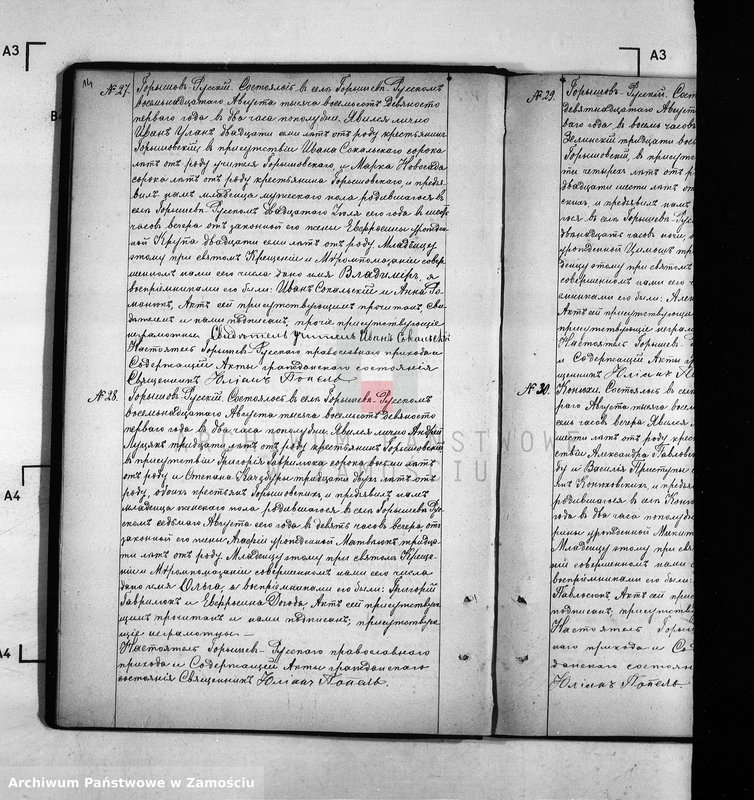 A3
A3
B4
A4
A4
14
№ 27.
Горышовъ-Русскій. Состоялось въ селѣ Горышевѣ-Русскомъ
восемьнадцатаго Августа тысяча восемьсотъ девяносто
перваго года въ два часа пополудни. Явился лично
Иванъ Уланъ двадцати семи лѣтъ отъ роду крестьянинъ
Горышовскій, въ присутствіи Ивана Сокальскаго сорока
лѣтъ отъ роду учителя Горышовскаго, и Марка Новосада
сорока лѣтъ отъ роду крестьянина Горышовскаго, и предъя-
вилъ намъ младенца мужескаго пола родившагося въ
селѣ Горышевѣ-Русскомъ двадцатаго Іюля сего года въ шесть
часовъ вечера отъ законной его жены Евфросины урожден-
ной Крупа двадцати семи лѣтъ отъ роду. Младенцу
этому при святомъ Крещеніи и Мѵропомазаніи совер-
шенномъ нами сего числа дано имя Владиміръ, а
воспріемниками его были: Иванъ Сокальскій и Анна Ро-
манюкъ. Актъ сей присутствующимъ прочитанъ, сви-
дѣтелемъ и нами подписанъ, прочіе присутствующіе
неграмотны. Свидѣтель учитель Иванъ Сокальскій
Настоятель Горышев-Русскаго православнаго прихода и
Содержащій Акты гражданскаго состоянія
Священникъ Юліанъ Попель
№ 28.
Горышовъ-Русскій. Состоялось въ селѣ Горышевѣ-Русскомъ
восемьнадцатаго Августа тысяча восемьсотъ девяносто
перваго года въ два часа пополудни. Явился лично Андрей
Луцакъ тридцати лѣтъ отъ роду крестьянинъ Горышовскій
въ присутствіи Григорія Гаврилюка сорока восьми лѣтъ
отъ роду и Степана тридцати двухъ лѣтъ отъ
роду, обоихъ крестьянъ Горышовскихъ и предъявилъ намъ
младенца женскаго пола родившагося въ селѣ Горышевѣ-Рус-
скомъ седьмаго Августа сего года въ девять часовъ вечера отъ
законной его жены Агафіи урожденной Матвѣюкъ тридца-
ти лѣтъ отъ роду. Младенцу этому при святомъ Креще-
ніи и Мѵропомазаніи совершенномъ нами сего числа
дано имя Ольга, а воспріемниками его были: Григорій
Гаврилюкъ и Евфросина Догода. Актъ сей присутствую-
щимъ прочитанъ и нами подписанъ, присутствую-
щіе неграмотны.—
Настоятель Горышев-Русскаго православнаго
прихода и Содержащій Акты гражданскаго
состоянія Священникъ Юліанъ Попель.
№ 29.
Горышовъ-Русскій. Сост
девятнадцатаго Август
ваго года въ восемь часовъ
Зелинскій тридцати вось
Горышовскій, въ присутст
ти четырехъ лѣтъ отъ р
двадцати шести лѣтъ от
скихъ, и предъявилъ нам
гося въ селѣ Горышевѣ-Рус
двѣнадцать часовъ ночи, о
урожденной
денцу этому при святомъ
совершенномъ нами сего
емниками его были: Алек
Актъ сей присутствующ
присутствующіе неграм
Настоятель Горышев-
и Содержащій Акты гр
щенникъ Юліанъ По
№ 30.
Конюхи. Состоялось въ селѣ
раго Августа тысяча восе
семь часовъ вечера. Явился л
шести лѣтъ отъ роду крест
ствіи Александра Павлов
ду и Василія Приступы с
янъ Конюховскихъ, и предъя
родившагося въ селѣ Коню
года въ два часа пополудн
рины урожденной Микит
Младенцу этому при свя
ніи совершенномъ нами с
воспріемниками его были:
Павлосюкъ. Актъ сей при
подписанъ, присутствую
Настоятель Горыш
наго прихода и Сод
данскаго состоян
Юліанъ Попель.
ARCHIWUM PAŃSTWOWE
W ZAMOŚCIU
Archiwum Państwowe w Zamościu